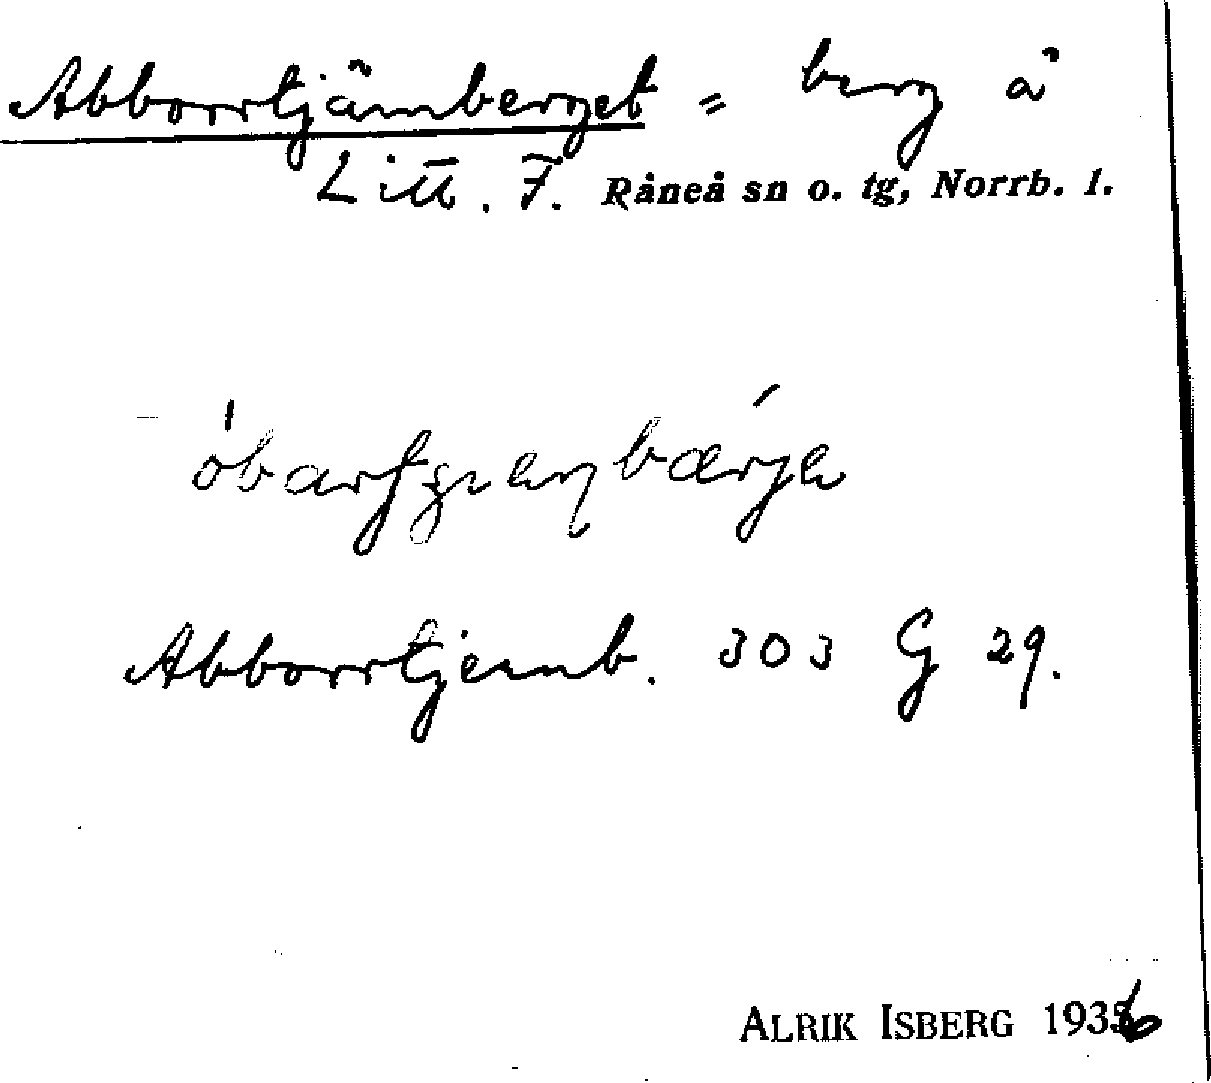 Abborrtjärnberget = berg å
Litt. F. Råneå sn o. tg, Norrb. l.
Abborrtjernb. 303 G 29.
ALRIK ISBERG 1936